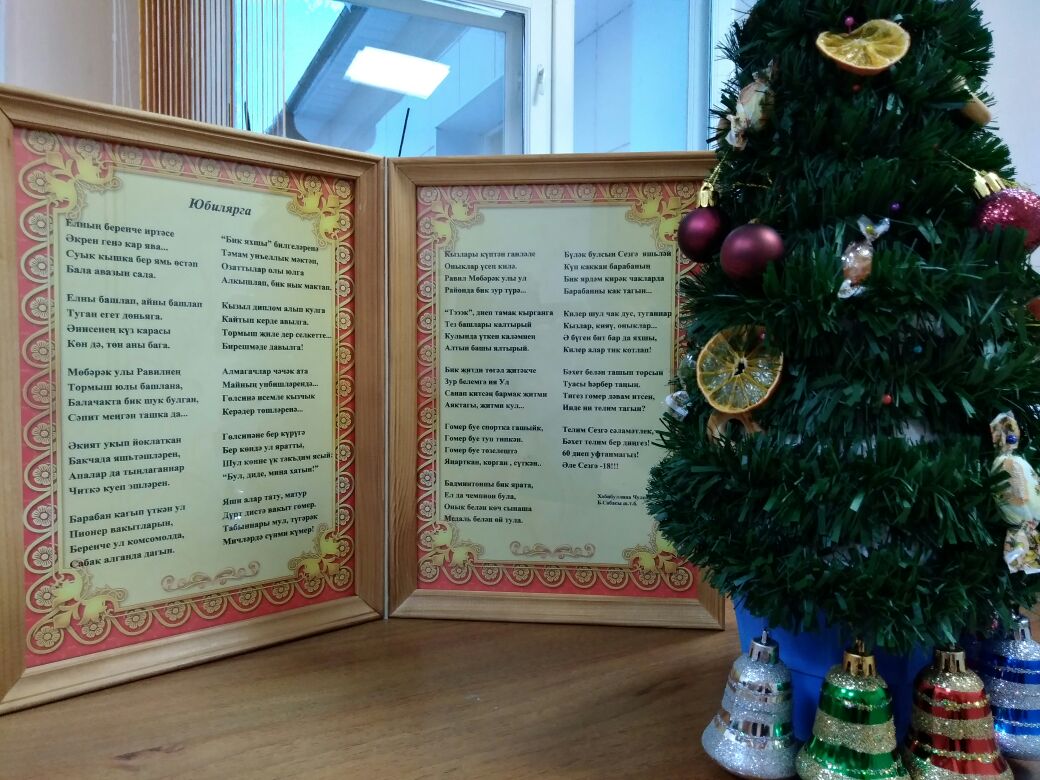 Юбилярга
Елның беренче иртәсе
Әкрен генә кар ява...
Суык кышка бер ямь өстәп
Бала авазын сала.
Елны башлап, айны башлап
Туган егет дөньяга.
Әнисенең күз карасы
Көн дә, төн аны бага.
Мөбәрәк улы Равилнең
Тормыш юлы башлана,
Балачакта бик шук булган,
Сәпит меңгән ташка да...
Әкият укып йоклаткан
Бакчада яшьтәшләрен,
Апалар да тыңлаганнар
Читкә куеп эшләрен.
Барабан кагып үткән ул
Пионер вакытларын,
Беренче ул комсомолда,
Сабак алганда дагын.
“Бик яхшы” билгеләренә
Тәмам унъеллык мәктәп,
Озаттылар олы юлга
Алкышлап, бик нык мактап.
Кызыл диплом алып кулга
Кайтып керде авылга.
Тормыш җиле дер селкетте...
Бирешмәде давылга!
Алмагачлар чәчәк ата
Майның унбишләрендә...
Гөлсинә исемле кызчык
Керәдер төшләренә...
Гөлсинәне бер күрүгә
Бер көндә ул яратты,
Шул көнне үк тәкъдим ясый:
“Бул, диде, миңа хатын!”
Яши алар тату, матур
Дүрт дистә вакыт гомер.
Табыннары мул, түгәрәк
Мичләрдә сүнми күмер!
Кызлары күптән гаиләдә
Оныклар үсеп килә.
Равил Мөбәрәк улы ул
Районда бик зур түрә...
“Тәээк”, диеп тамак кырганга
Тез башлары калтырый
Кулында үткен каләмнең
Алтын башы ялтырый.
Бик җитди төгәл җитәкче
Зур белемгә ия Ул
Санап китсәң бармак җитми
Аяктагы, җитми кул...
Гомер буе спортка гашыйк,
Гомер буе туп типкән.
Гомер буе төзелештә
Яңарткан, корган , сүткән..
Бадминтонны бик ярата,
Ел да чемпион була,
Онык белән көч сынаша
Медаль белән өй тула.
Бүләк булсын Сезгә яшьләй
Күп каккан барабаның
Бик ярдәм кирәк чакларда
Барабанны как тагын...
Килер шул чак дус, туганнар
Кызлар, кияү, оныклар...
Ә бүген бит бар да яхшы,
Килер алар тик котлап!
Бәхет белән ташып торсын
Туасы һәрбер таңың.
Тигез гомер дәвам итсен,
Инде ни телим тагын?
Телим Сезгә сәламәтлек,
Бәхет телим бер диңгез!
60 диеп уфтанмагыз!
Әле Сезгә -18!!!
Хәбибуллина
Б.Сабасы ш.т.б.